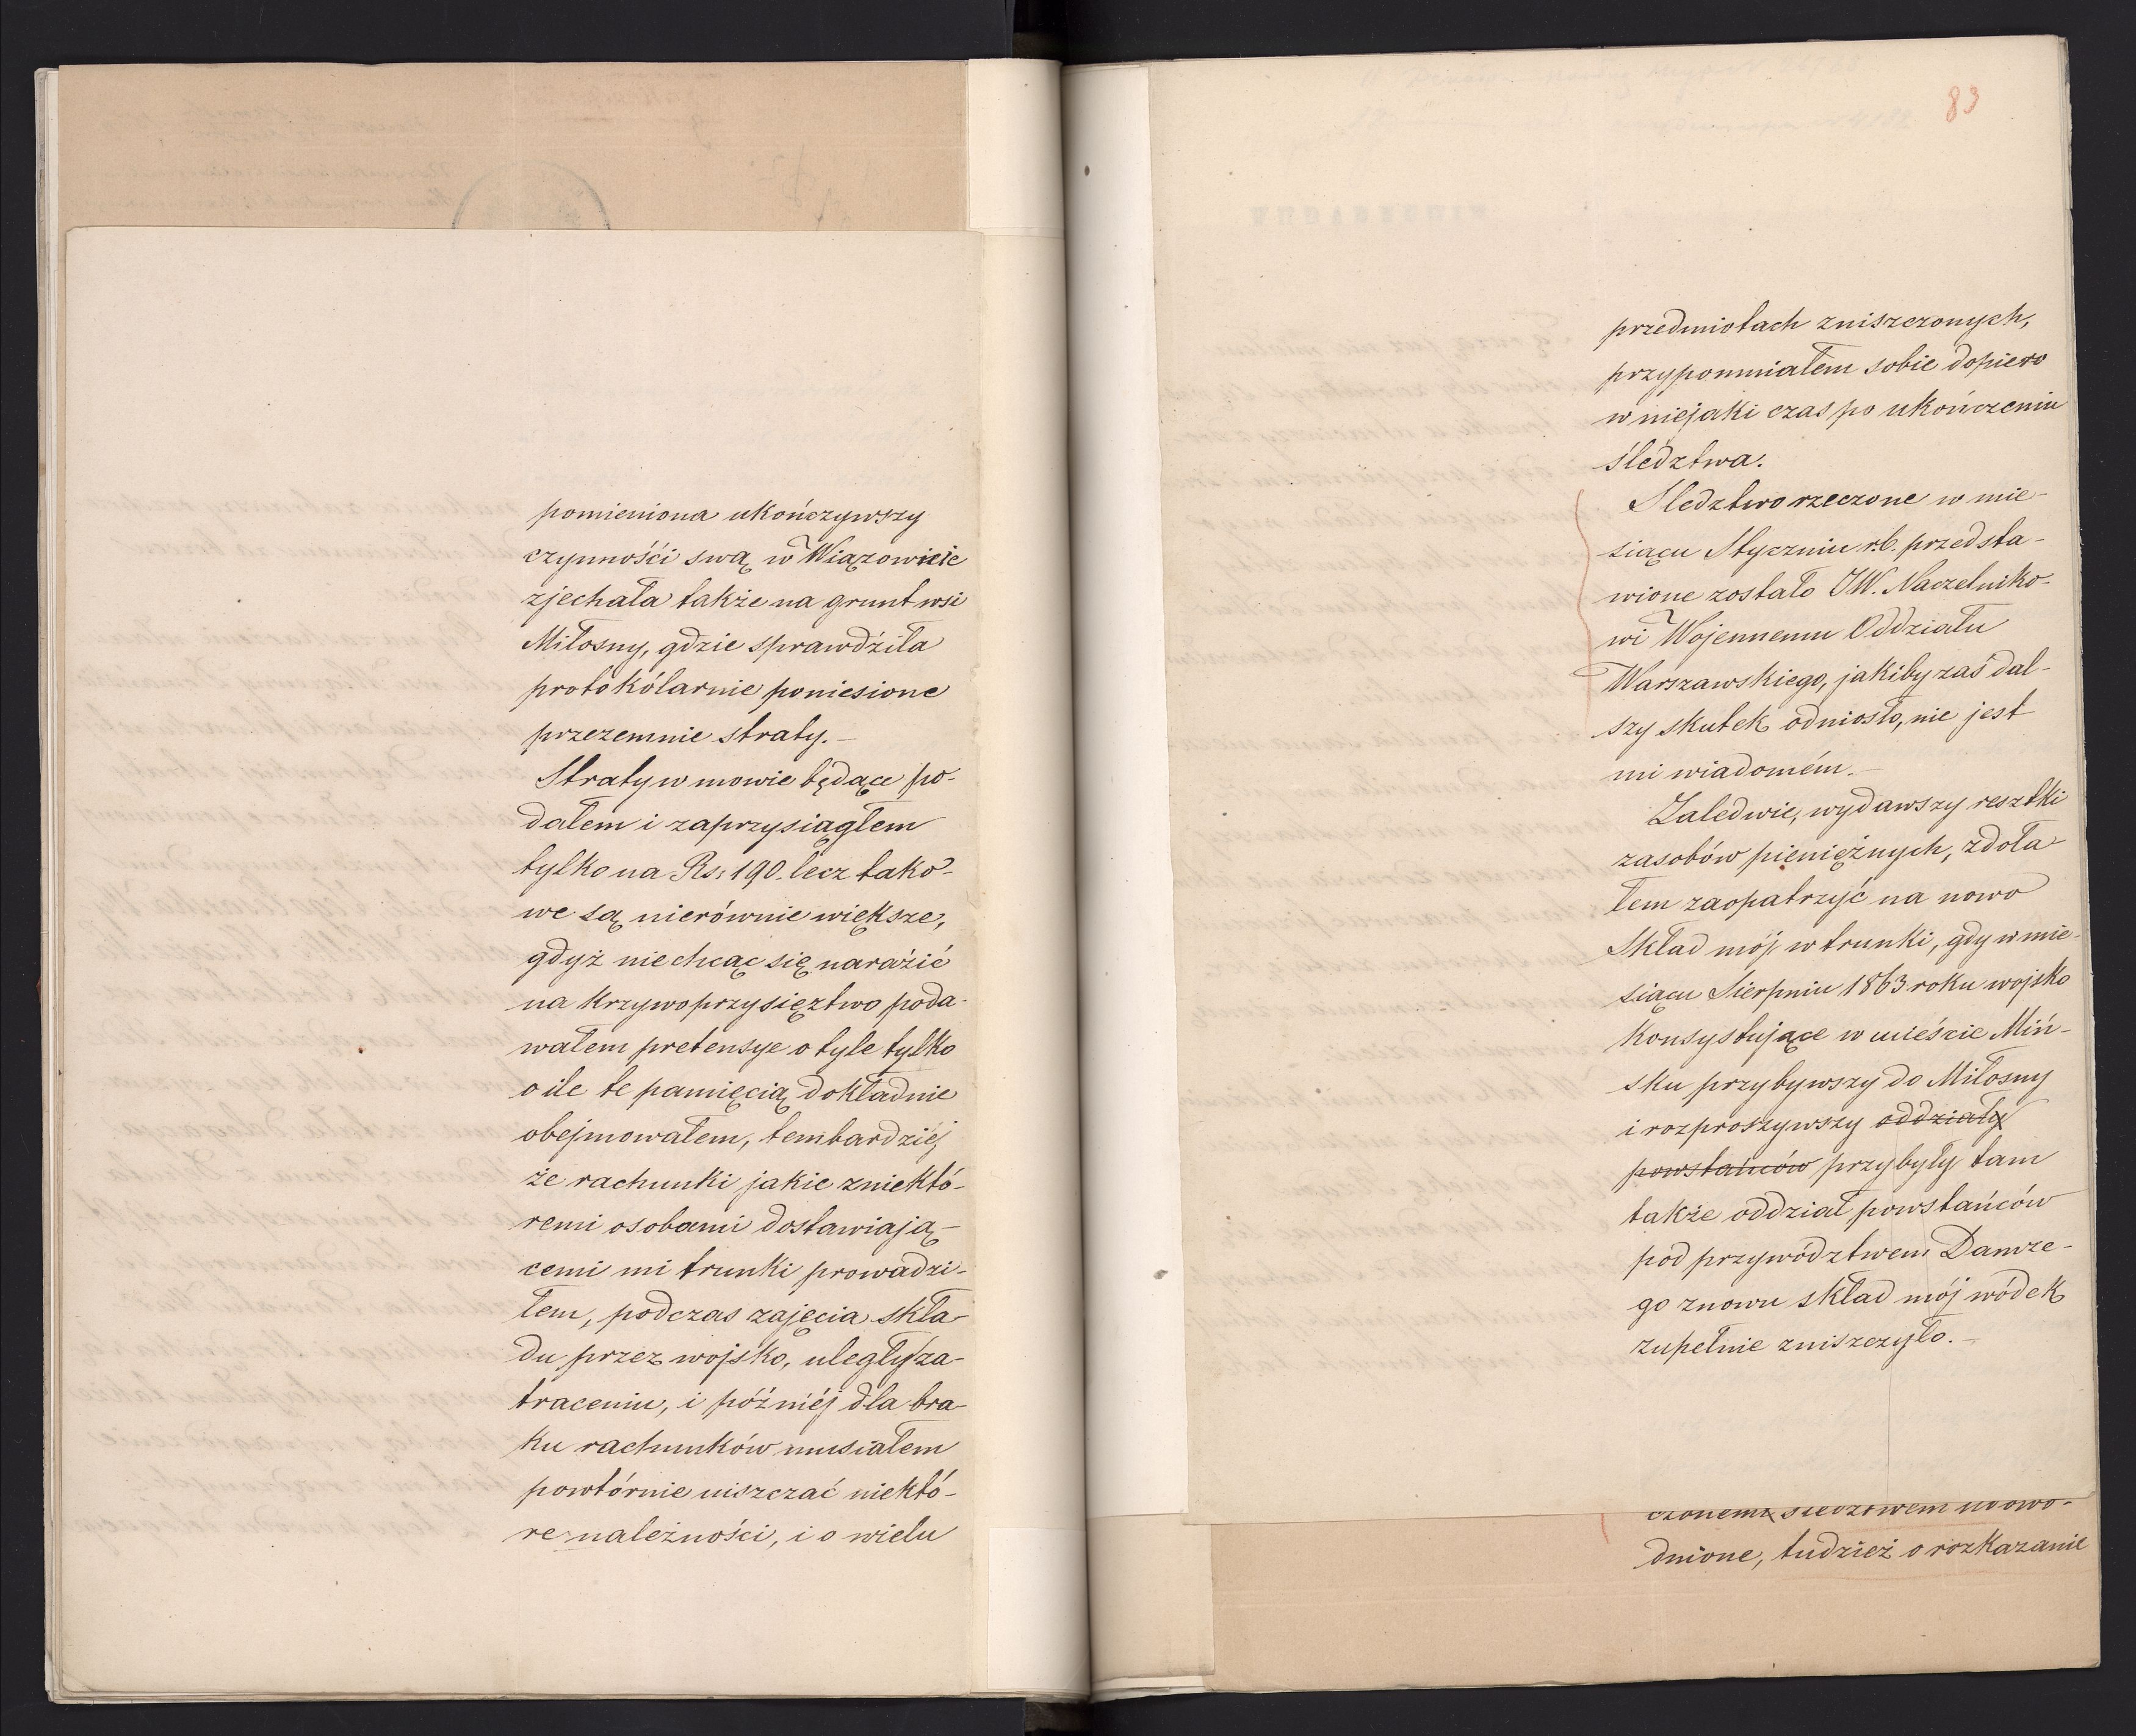 pomieniona ukończywszy
czynnośći swą w Wiązownie
zjechała także na grunt wsi
Miłosny, gdzie sprawdźiła
protokólarnie poniesione
przezemnie straty.—
Straty w mowie będące po-
dałem i zaprzysiągłem
tylko na Rs: 190. lecz tako-
we są nierównie większe,
gdyż niechcąc się narazić
na krzywoprzysięztwo poda-
wałem pretensye o tyle tylko
o ile te pamięcią dokładnie
obejmowałem, tembardziéj
że rachunki jakie z niektó-
remi osobami dostawiają-
cemi mi trunki prowadzi-
łem, podczas zajęcia skła-
du przez wojsko, uległy za-
traceniu, i późniéj dla bra-
ku rachunków musiałem
powtórnie uiszczać niektó-
re należności, i o wielu
83
przedmiotach zniszczonych,
przypomniałem sobie dopiero
w niejaki czas po ukończeniu
śledztwa.
Sledztwo rzeczone w mie-
siącu Styczniu r.b. przedsta-
wione zostało JW. Naczelniko-
wi Wojennemu Oddziału
Warszawskiego, jakiby zaś dal-
szy skutek odniosło, nie jest
mi wiadomém.—
Zaledwie, wydawszy resztki
zasobów pieniężnych, zdoła-
łem zaopatrzyć na nowo
Skład mój w trunki, gdy w mie-
siącu Sierpniu 1863 roku wojsko
konsystujące w mieście Miń-
sku przybywszy do Miłosny
i rozproszywszy oddziały
powstańców przybyły tam
także oddział powstańców
pod przywództwem Damze-
go znowu skład mój wódek
zupełnie zniszczyło.—
czonem śledztwem udowo-
dnione, tudzież o rozkazanie